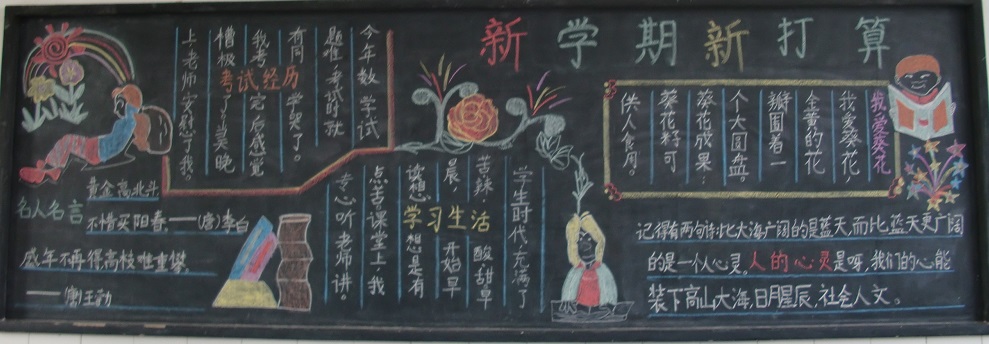 新学期新打算
考试经历
今年数学试
题难,考试时就
有同学哭了。
我考完后感觉
槽极了,当晚
上老师安慰了我。
名人名言
黄金高北斗
不惜买阳春。——(唐)李白
年不再得高枝唯重攀。
——(唐)王勃
学习生活
学生时代,充满了
苦辣,酸甜早
晨,开始早
读想,想是有
点苦课堂上,我
专心听老师讲。
我爱葵花
我爱葵花,
金黄的花
瓣围着一
个大圆盘。
葵花成果:
葵花籽可
供人食用。
记得有两句诗:比大海广阔的是蓝天,而比蓝天更广阔
的是一个人心灵。人的心灵是呀,我们的心能
装下高山大海,日月星辰,社会人文。